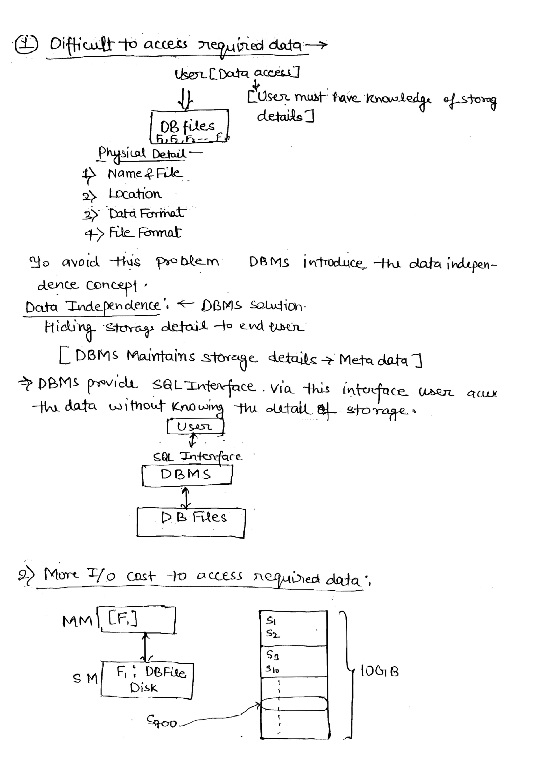 ① Difficult to access required data →
User [Data access]
[User must have knowledge of storag
details]
DB files
F₁, F₂, F₃ --- Fₙ
Physical Detail —
1) Name & File
2) Location
3) Data Format
4) File Format
To avoid this problem DBMS introduce the data indepen-
dence concept.
Data Independence: ← DBMS solution.
Hiding storage detail to end user
[DBMS Maintains storage details → Meta data]
→ DBMS provide SQL Interface. via this interface user
the data without knowing the detail of storage.
User
SQL Interface
DBMS
DB Files
2) More I/o cost to access required data:
MM [F₁]
SM F₁ : DBFile
Disk
S₁
S₂
S₉
S₁₀
10GB
S₇₀₀